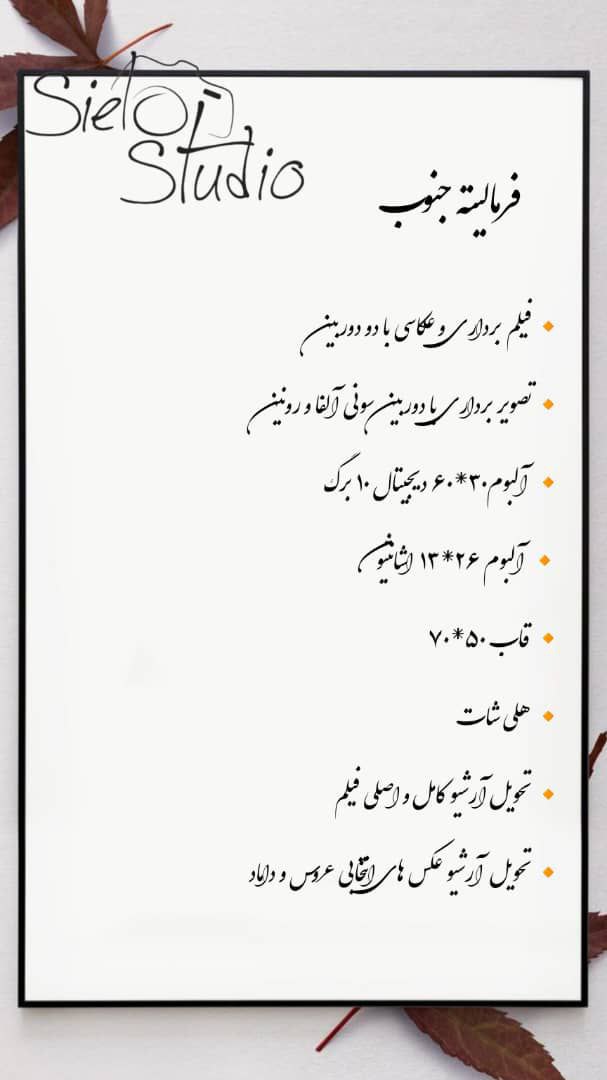 Sielo
Studio
فرمالیته جنوب
فیلم برداری و عکاسی با دو دوربین
تصویر برداری با دوربین سونی آلفا و رونین
آلبوم ۳۰*۶۰ دیجیتال ۱۰ برگ
آلبوم ۲۶*۱۳ اشانتیون
قاب ۵۰*۷۰
هلی شات
تحویل آرشیو کامل و اصلی فیلم
تحویل آرشیو عکس های انتخابی عروس و داماد